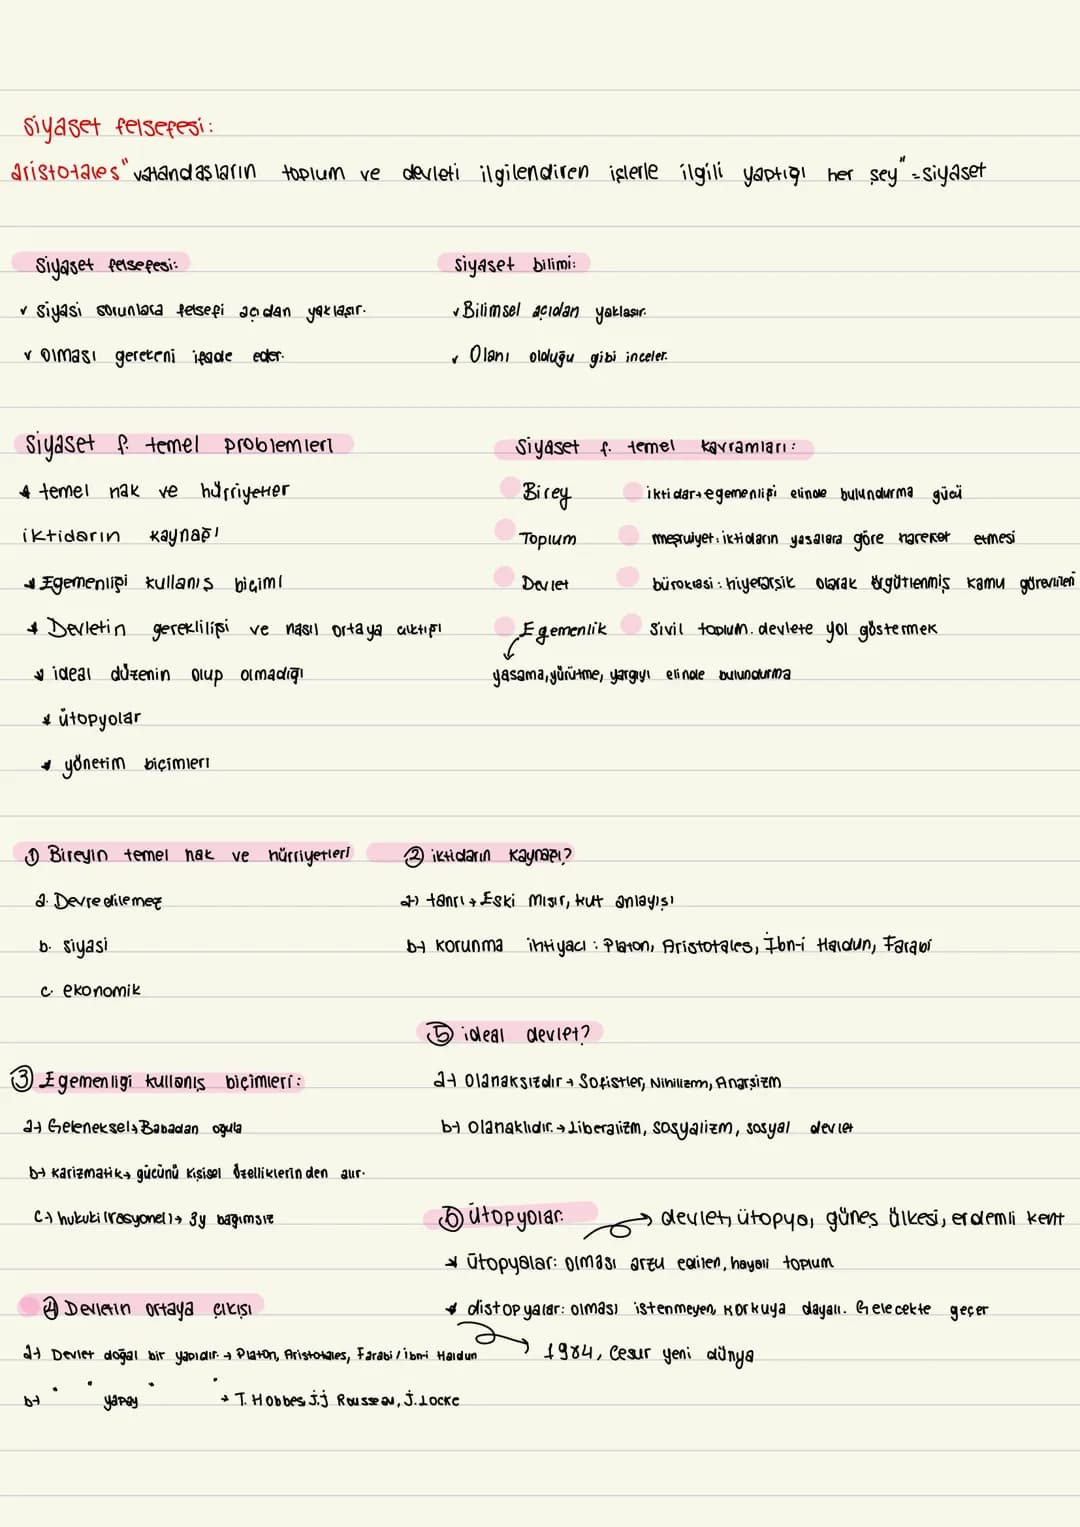 Siyaset felsefesi:
aristotales "vatandaşların toplum ve devleti ilgilendiren işlerle ilgili yaptığı her şey" = siyaset
Siyaset felsefesi:
✓ Siyasi sorunlara felsefi açıdan yaklaşır.
✓ Olması gerekeni ifade eder.
Siyaset bilimi:
✓ Bilimsel açıdan yaklaşır.
✓ Olanı olduğu gibi inceler.
Siyaset f. temel problemleri
* temel hak ve hürriyetler
iktidarın kaynağı
* Egemenliği kullanış biçimi
* Devletin gerekliliği ve nasıl ortaya çıktığı
* ideal düzenin olup olmadığı
* ütopyolar
* yönetim biçimleri
Siyaset f. temel kavramları:
Birey
Toplum
Devlet
Egemenlik
yasama, yürütme, yargıyı elinde bulundurma
iktidar→egemenliği elinde bulundurma gücü
meşruiyet: iktidarın yasalara göre hareket etmesi
bürokrasi: hiyerarşik olarak örgütlenmiş kamu görevlileri
Sivil toplum. devlete yol göstermek
① Bireyin temel hak ve hürriyetleri
a. Devredilemez
b. siyasi
c. ekonomik
② iktidarın kaynağı?
a-) tanrı → Eski Mısır, kut anlayışı
b-) korunma ihtiyacı: Platon, Aristotales, İbn-i Haldun, Farabi
③ Egemenligi kullanış biçimleri:
a-) Geleneksel→Babadan ogula
b-) karizmatik→ gücünü kişisel özelliklerinden alır.
c-) hukuki (rasyonel)→ 3y bağımsız
④ Devletin ortaya çıkışı
a-) Devlet doğal bir yapıdır. → Platon, Aristotales, Farabi / ibn-i Haldun
b-) " " yapay " " → T. Hobbes, j.j Rousseau, j. Locke
⑤ ideal devlet?
a-) Olanaksızdır → Sofistler, Nihilizm, Anarşizm
b-) olanaklıdır. → Liberalizm, sosyalizm, sosyal devlet
⑥ ütopyolar. → devlet, ütopya, güneş ülkesi, erdemli kent
* ütopyalar: olması arzu edilen, hayali toplum
* distopyalar: olması istenmeyen, korkuya dayalı. Gelecekte geçer
→ 1984, Cesur yeni dünya